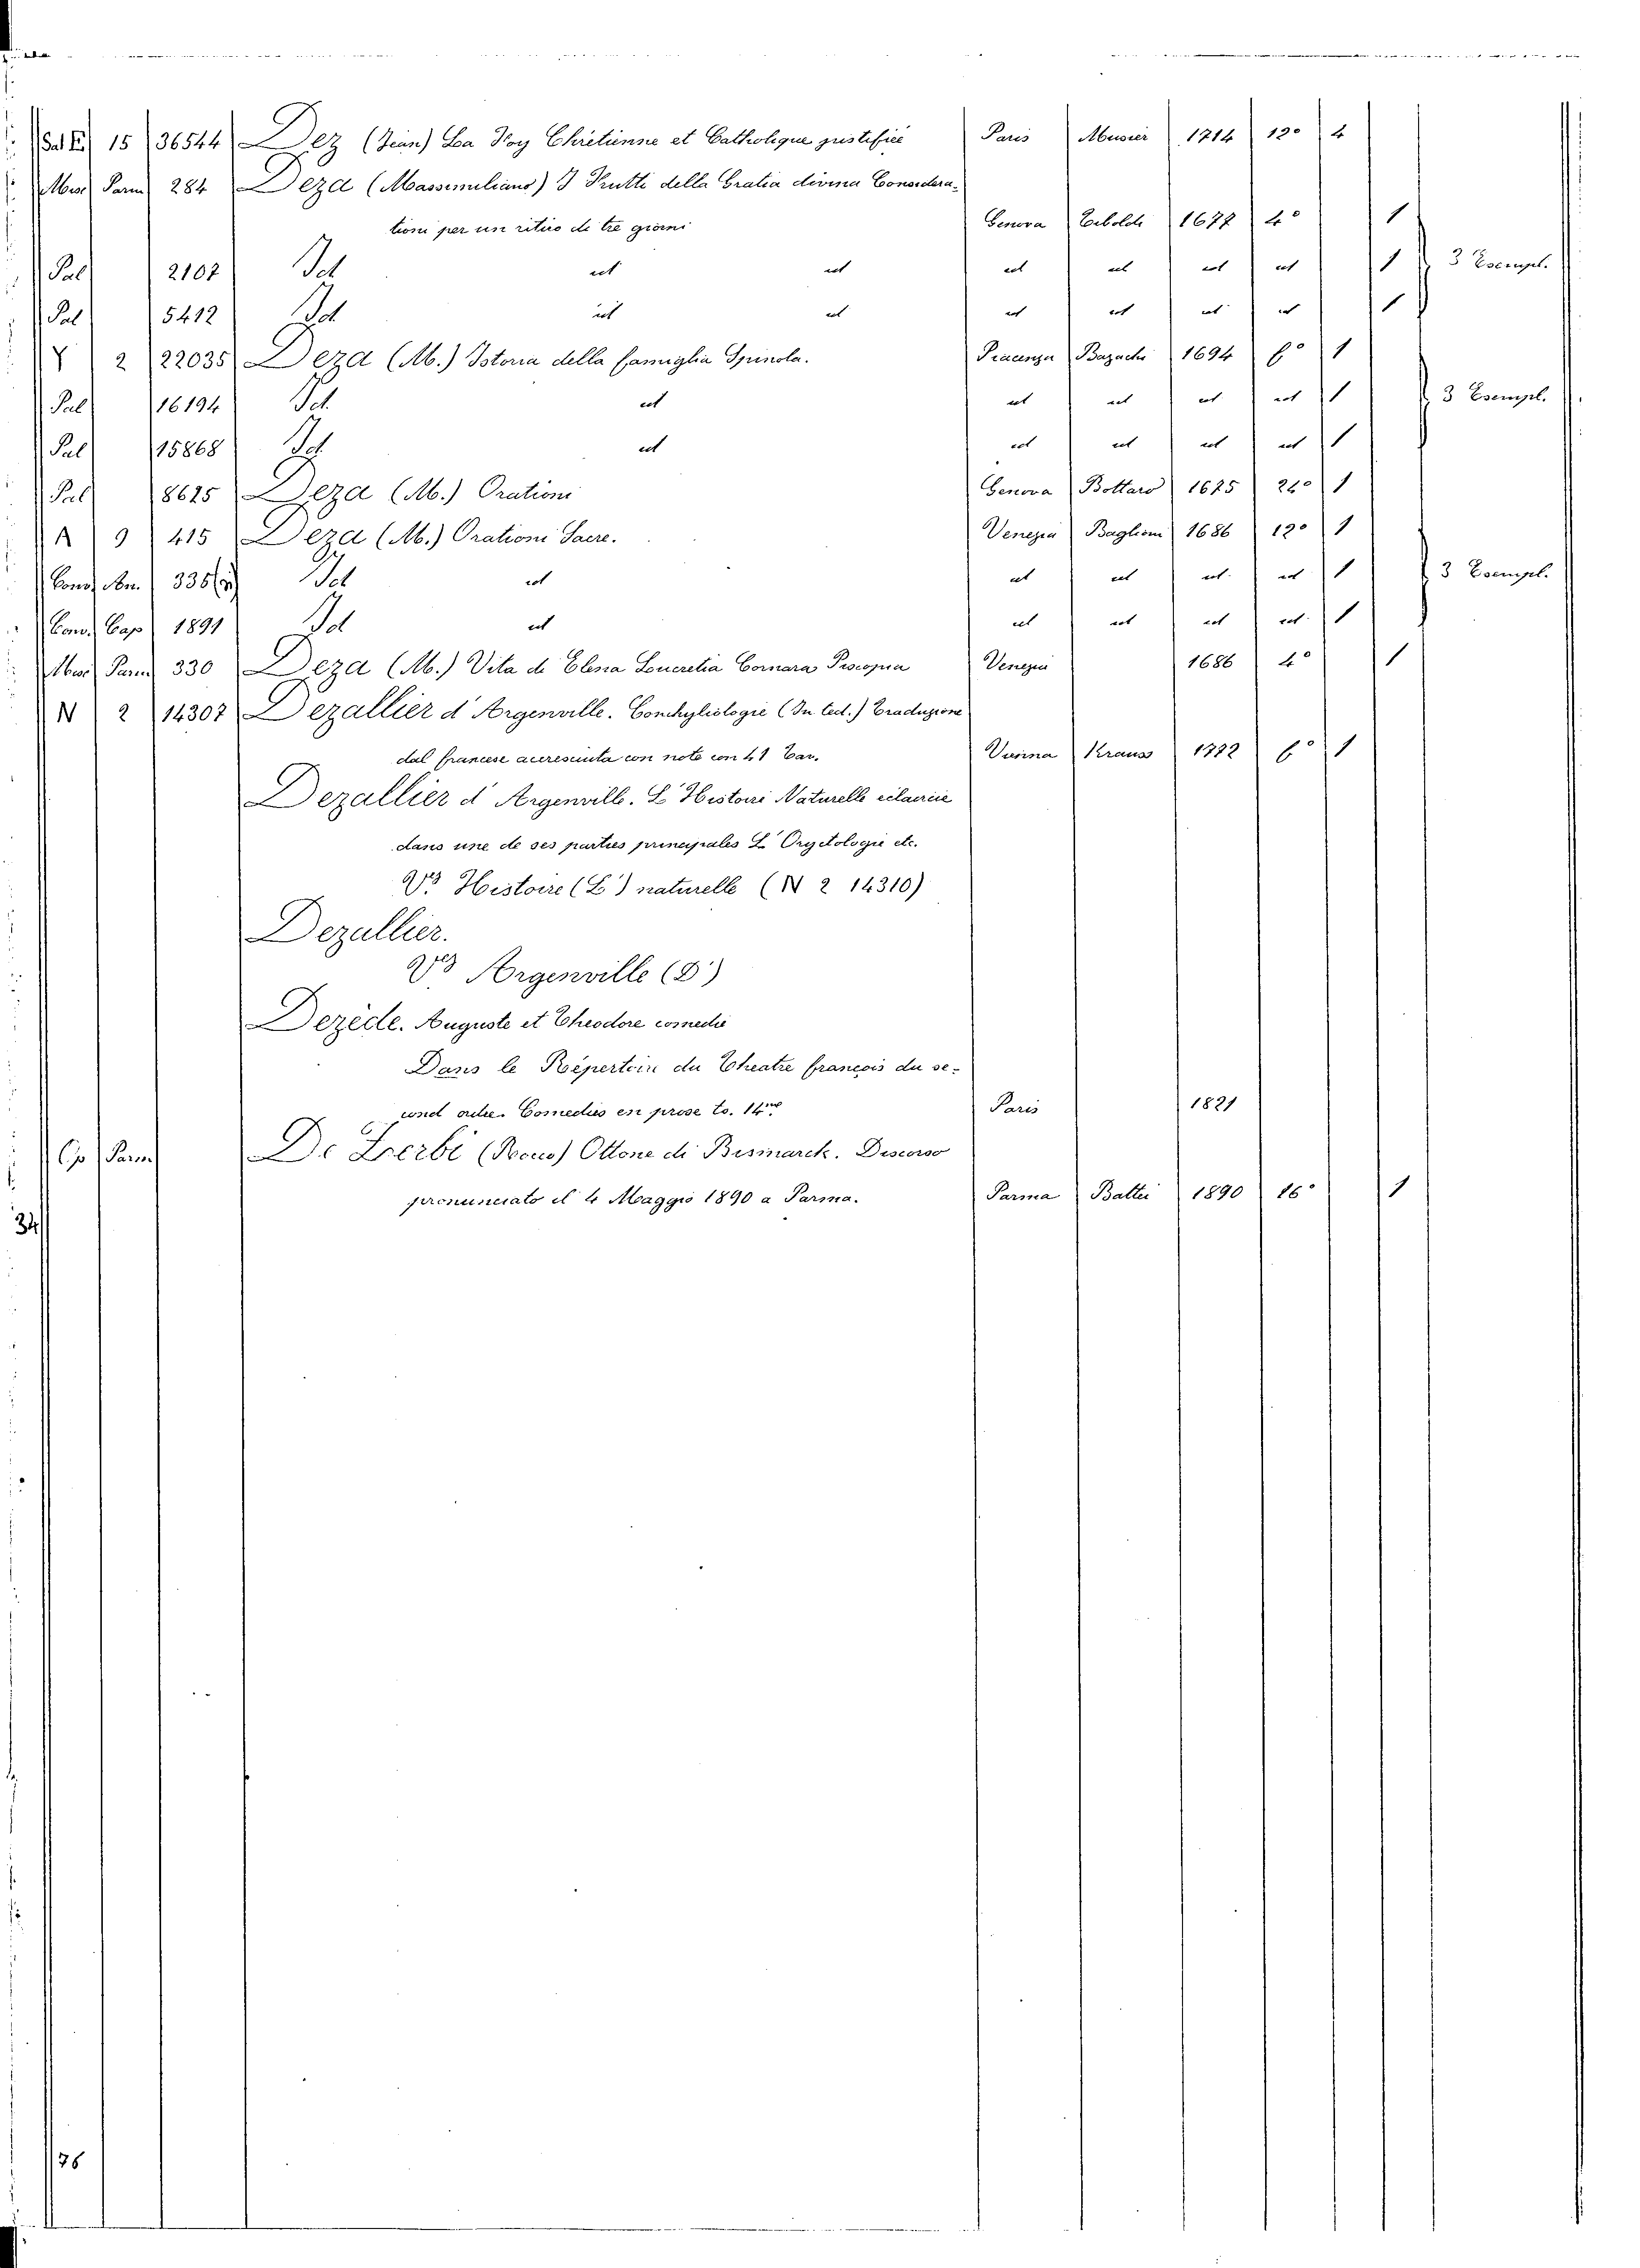 Sal. E. 15 36544 Dez (Jean) La Foy Chrétienne et Catholique justifiée Paris Musier 1714 12° 4
Misc. Parm. 284 Deza (Massimiliano) I Frutti della Gratia divina Considera-
tioni per un ritiro di tre giorni Genova Tiboldi 1677 4° 1
Pal. 2107 Id. ut ut ut ut ut ut 1 3 Esempl.
Pal. 5412 Id. ut ut ut ut ut ut 1
Y 2 22035 Deza (M.) Istoria della famiglia Spinola. Piacenza Bazachi 1694 f° 1
Pal. 16194 Id. ut ut ut ut ut 1 3 Esempl.
Pal. 15868 Id. ut ut ut ut ut 1
Pal. 8625 Deza (M.) Orationi Genova Bottaro 1675 24° 1
A 9 415 Deza (M.) Orationi Sacre. Venezia Baglioni 1686 12° 1
Conv. An. 335 Id. ut ut ut ut. ut 1 3 Esempl.
Conv. Cap. 1891 Id. ut ut ut ut ut. 1
Misc. Parm. 330 Deza (M.) Vita di Elena Lucretia Cornara Piscopia Venezia 1686 4° 1
N 2 14307 Dezallier d'Argenville. Conchyliologie (In ted.) Traduzione
dal francese accresciuta con note con 41 Tav. Vienna Kraus 1772 f° 1
Dezallier d'Argenville. L'Histoire Naturelle éclaircie
dans une de ses parties principales L'Oryctologie etc.
V° Histoire (L') naturelle (N 2 14310)
Dezallier.
V° Argenville (D')
Dezède. Auguste et Théodore comedie
Dans le Répertoire du Theatre françois du se-
cond ordre. Comedies en prose to. 14me Paris 1821
Op. Parm. De Zerbi (Rocco) Ottone di Bismarck. Discorso
pronunciato il 4 Maggio 1890 a Parma. Parma Battei 1890 16° 1
34
76